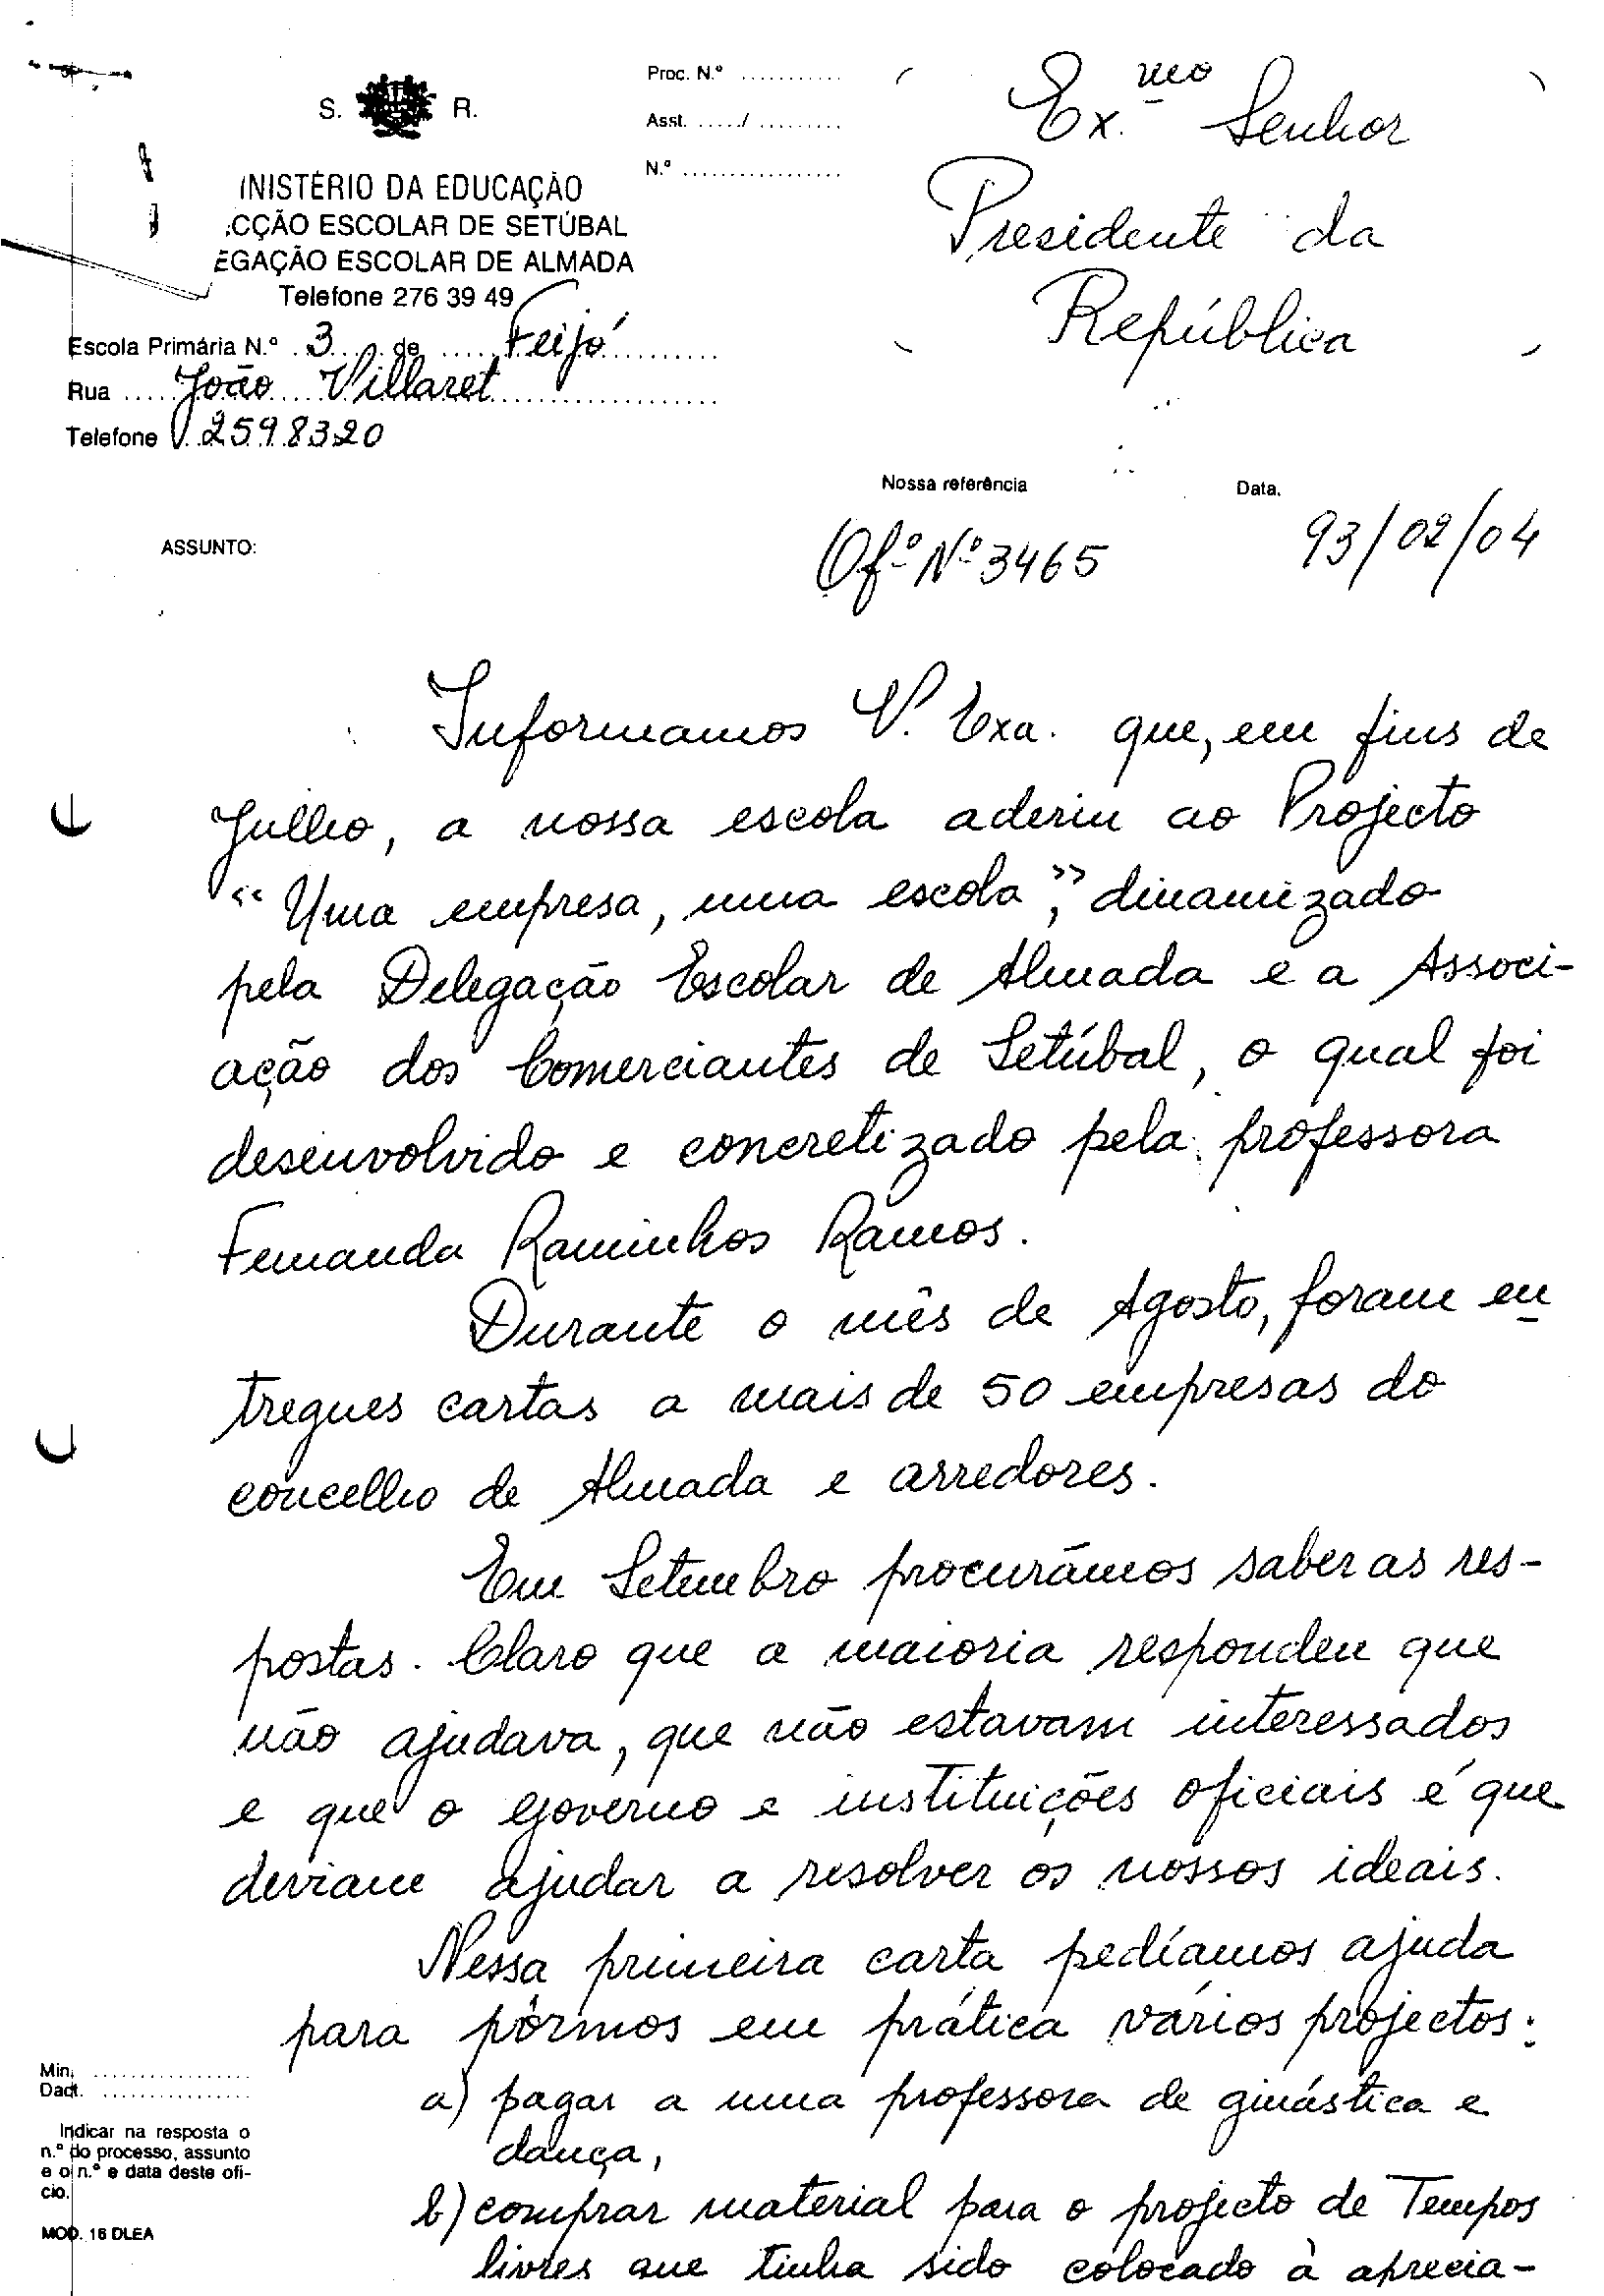 S. R.
INISTÉRIO DA EDUCAÇÃO
CÇÃO ESCOLAR DE SETÚBAL
EGAÇÃO ESCOLAR DE ALMADA
Telefone 276 39 49
Escola Primária N.º 3 de Feijó
Rua João Villaret
Telefone 2598320
Proc. N.º ...........
Asst. ...../ .........
N.º .................
Ex.mo Senhor
Presidente da
República
Nossa referência
Data.
ASSUNTO:
Of.º Nº 3465
93/02/04
Informamos V. Exa. que, em fins de
Julho, a nossa escola aderiu ao Projecto
"Uma empresa, uma escola", dinamizado
pela Delegação Escolar de Almada e a Associ-
ação dos Comerciantes de Setúbal, o qual foi
desenvolvido e concretizado pela professora
Fernanda Raminhos Ramos.
Durante o mês de Agosto, foram en
tregues cartas a mais de 50 empresas do
concelho de Almada e arredores.
Em Setembro procurámos saber as res-
postas. Claro que a maioria respondeu que
não ajudava, que não estavam interessados
e que o governo e instituições oficiais é que
deviam ajudar a resolver os nossos ideais.
Nessa primeira carta pedíamos ajuda
para pôrmos em prática vários projectos:
a) pagar a uma professora de ginástica e
dança,
b) comprar material para o projecto de Tempos
livres que tinha sido colocado à aprecia-
Min. .................
Dact. ................
Indicar na resposta o
n.º do processo, assunto
e o n.º e data deste ofí-
cio.
MOD. 16 DLEA